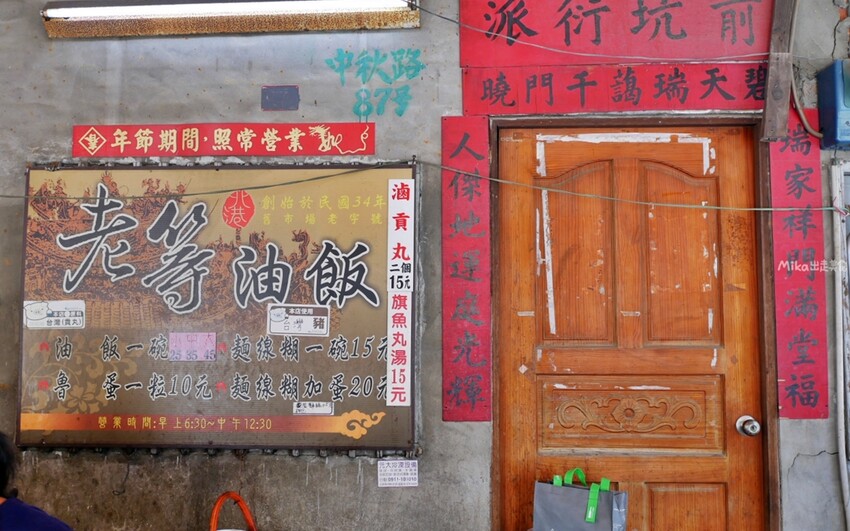 派衍坑前
曉門千藹瑞天碧
中秋路
87号
年節期間，照常營業
北港
創始於民國34年
舊市場老字號
老等油飯
滷貢丸二個15元旗魚丸湯15元
台灣(貢丸)
本店使用
台灣豬
油飯一碗 小25 中35 大45
麵線糊一碗15元
魯蛋一粒10元
麵線糊加蛋20元
營業時間:早上6:30~中午12:30
人傑地運處光輝
瑞家祥門滿堂福
Mika出走美食